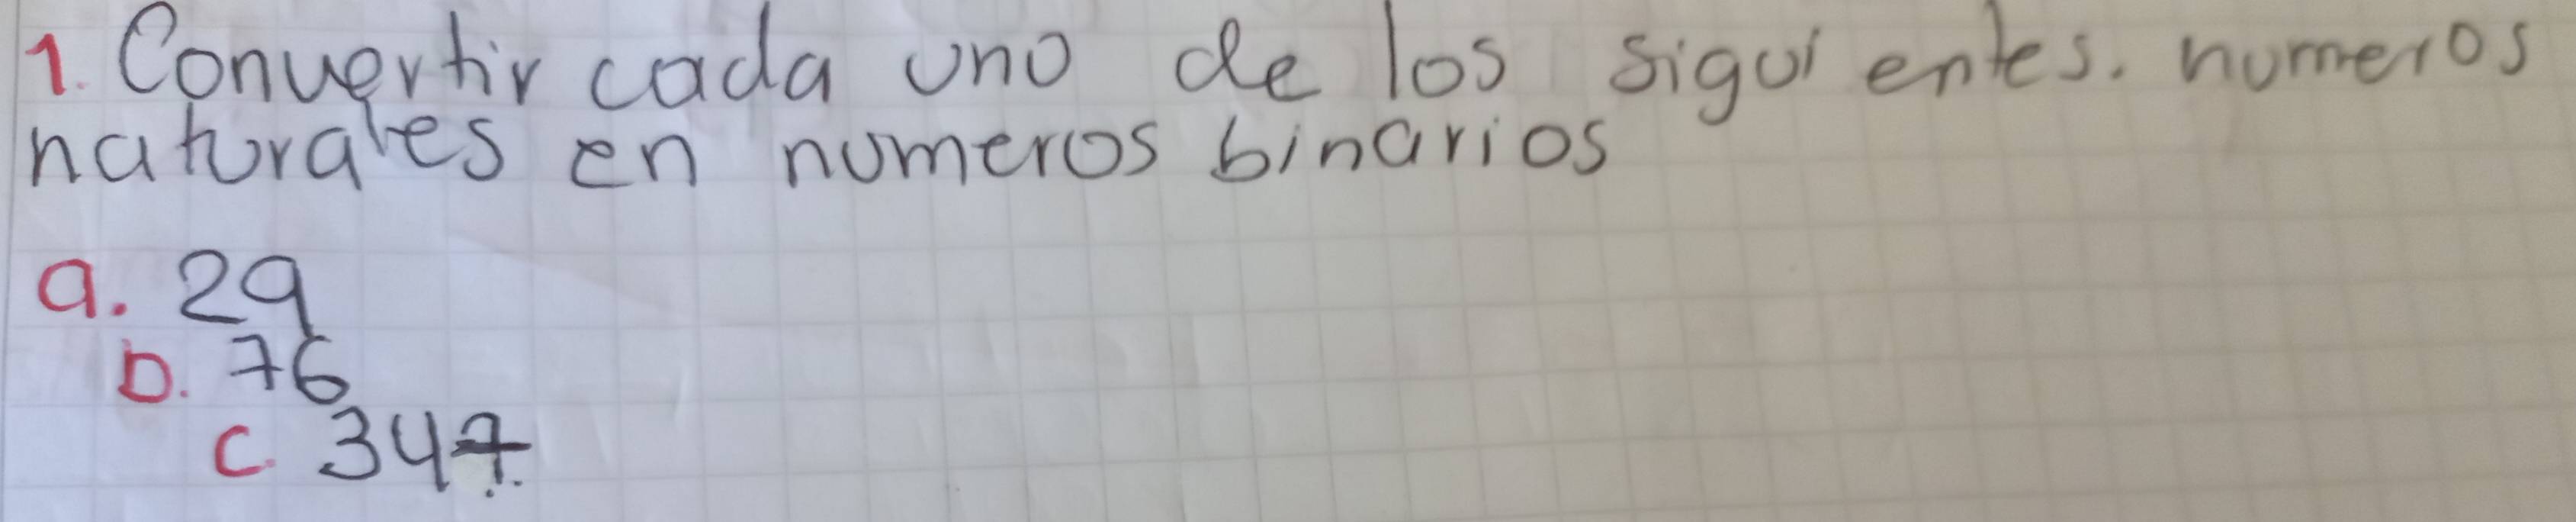 1. Convertir cada uno de los sigui entes. numeros
naturales en numeros binarios
a. 29
b. 76
c. 347